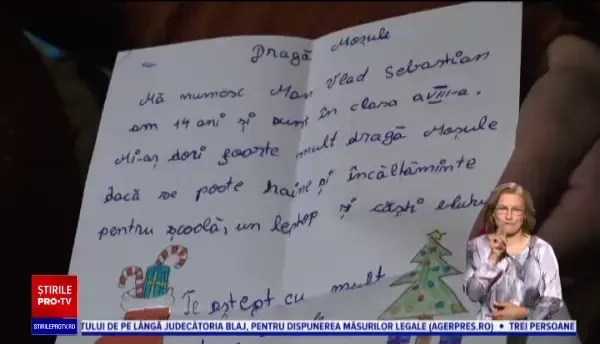 Dragă Moșule
Mă numesc Man Vlad Sebastian
am 14 ani și sunt în clasa a VIII-a.
Mi-aș dori foarte mult dragă Moșule
dacă se poate haine și încălțăminte
pentru școală, un leptop și căști
Te aștept cu mult
ȘTIRILE
PRO•TV
STIRILEPROTV.RO
TULUI DE PE LÂNGĂ JUDECĂTORIA BLAJ, PENTRU DISPUNEREA MĂSURILOR LEGALE (AGERPRES.RO) • TREI PERSOANE